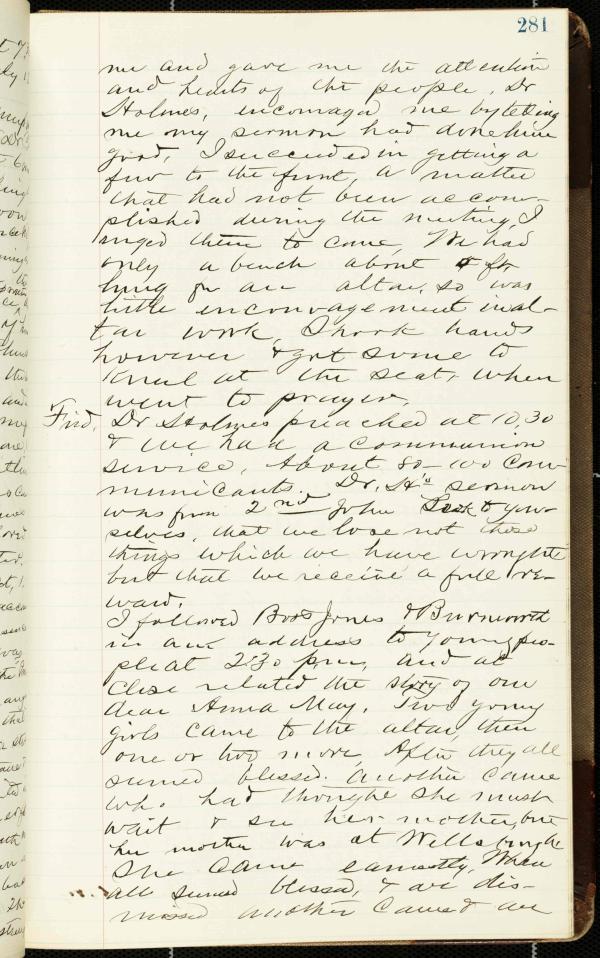 281
me and gave me the attention
and hearts of the people. Dr
Holmes, encouraged me by telling
me my sermon had done him
good, I succeeded in getting a
few to the front, a matter
that had not been accom-
plished during the meeting, I
urged them to come, We had
only a bench about 4 ft
long for an altar, so was
little encouragement in al-
tar work, I shook hands
however & got some to
kneel at the seat, when
went to prayer.
Dr Holmes preached at 10,30
& we had a communion
service, About 80-100 com-
municants. Dr, H's sermon
was from 2nd John Look to your-
selves, that we lose not those
things which we have wrought
but that we receive a full re-
ward.
I followed Bros Jones & Burnworth
in an address to young peo-
ple at 2:30 p.m. and at
close related the story of our
dear Anna May. Two young
girls came to the altar, then
one or two more, After they all
seemed blessed. another came
who had thought she must
wait & see her mother, but
her mother was at Wellsburg
She came earnestly, When
all seemed blessed, & we dis-
missed another came & we